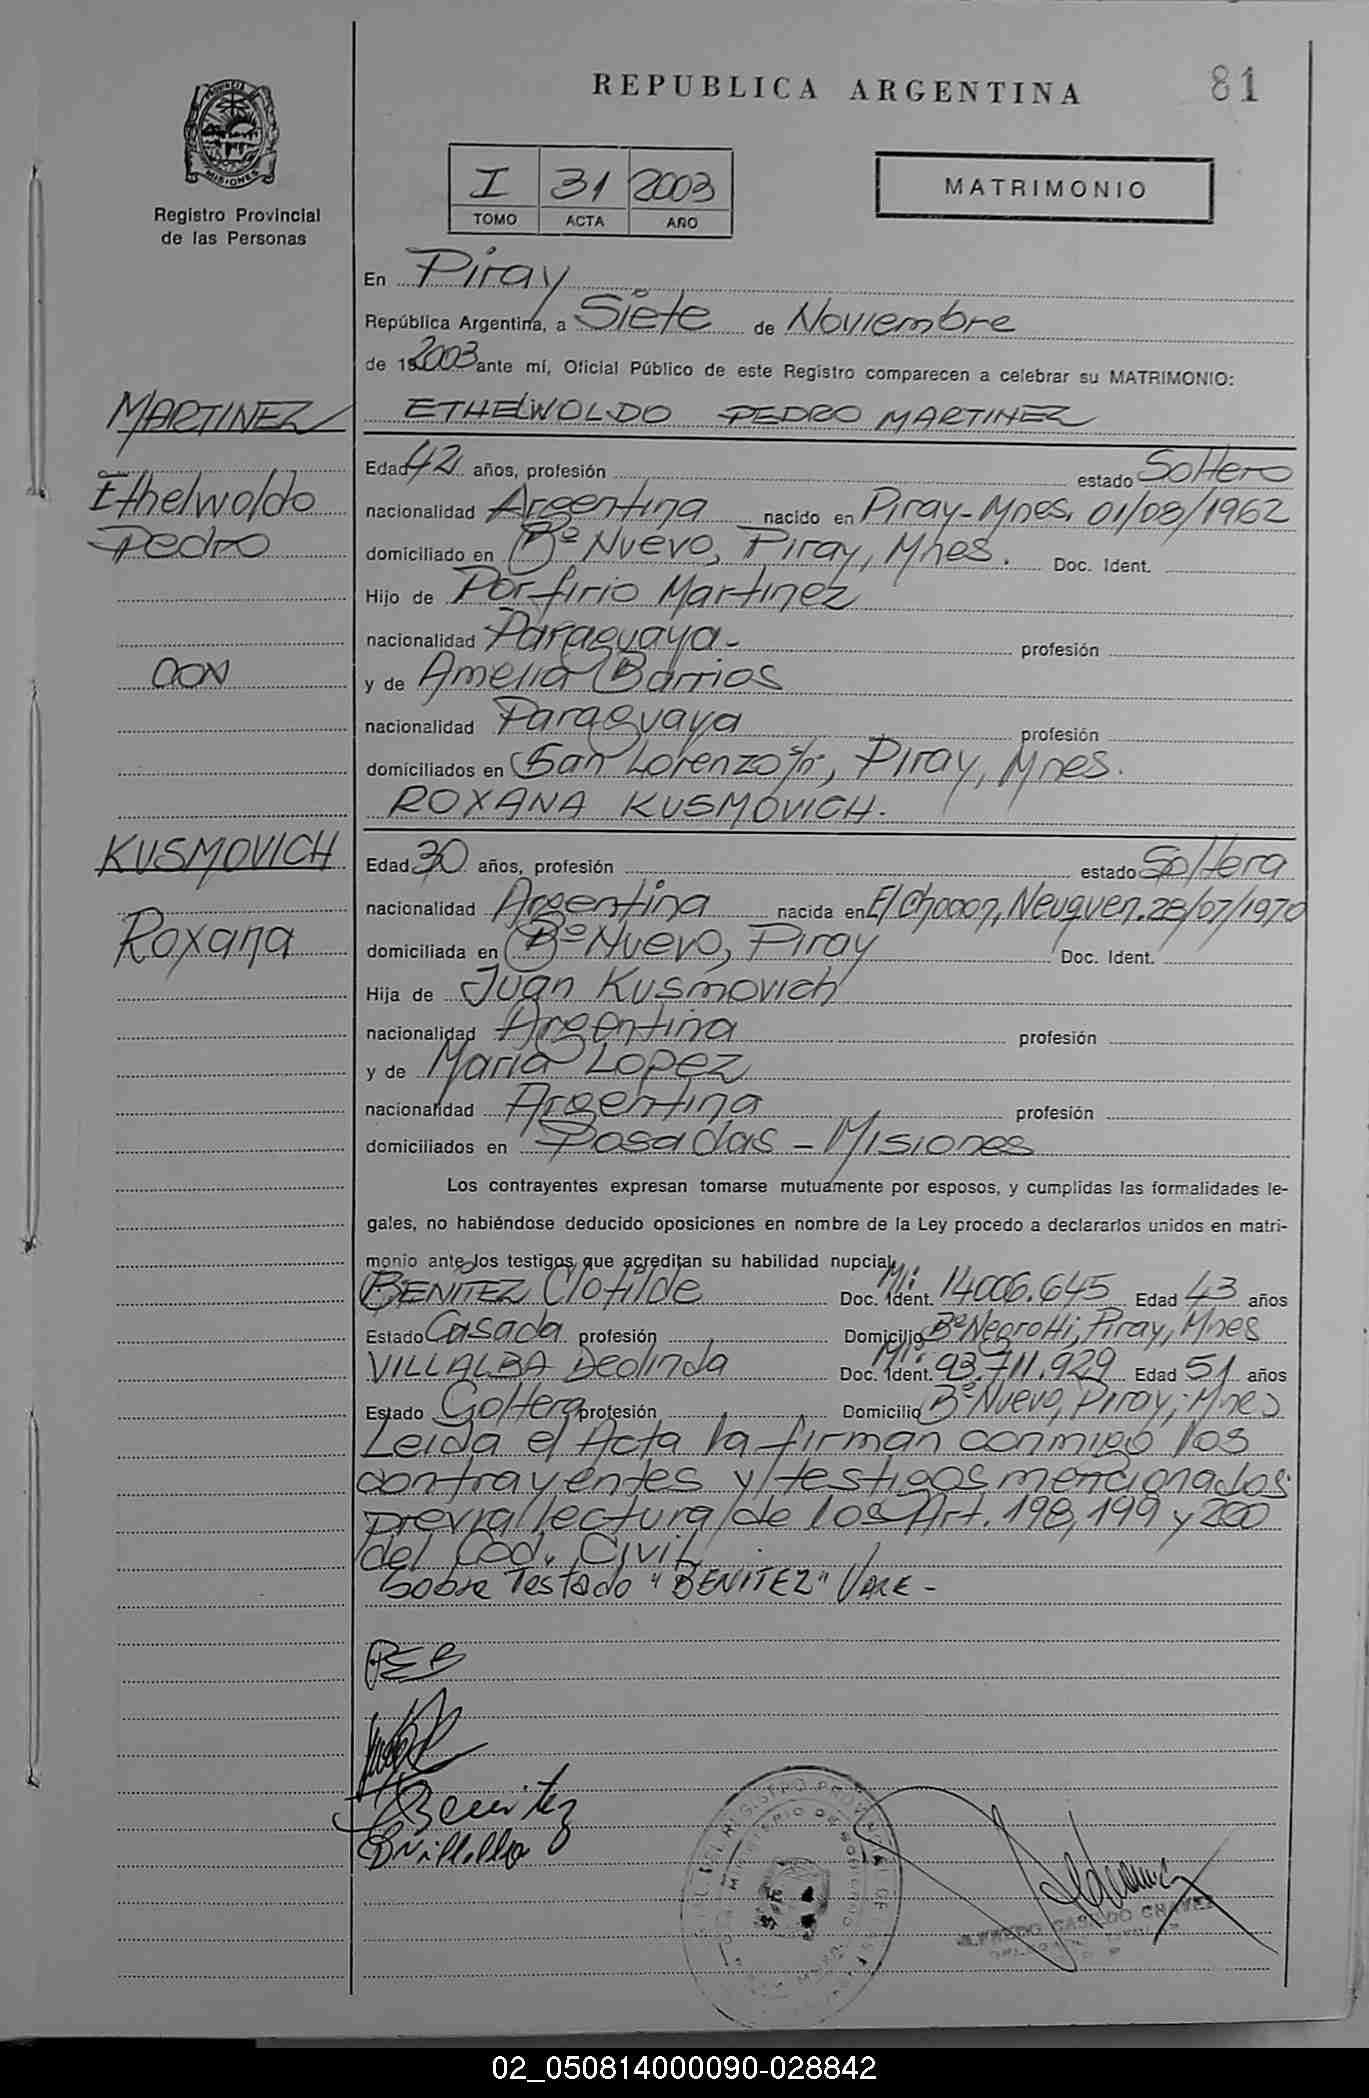 REPUBLICA ARGENTINA
81
PROVINCIA DE
MISIONES
Registro Provincial
de las Personas
I 31 2003
TOMO ACTA AÑO
MATRIMONIO
En Piray
República Argentina, a Siete de Noviembre
de 2003 ante mí, Oficial Público de este Registro comparecen a celebrar su MATRIMONIO:
MARTINEZ
Ethelwoldo
Pedro
CON
KUSMOVICH
Roxana
ETHELWOLDO PEDRO MARTINEZ
Edad 42 años, profesión estado Soltero
nacionalidad Argentina nacido en Piray-Mnes, 01/08/1962
domiciliado en Bº Nuevo, Piray, Mnes. Doc. Ident.
Hijo de Porfirio Martinez
nacionalidad Paraguaya- profesión
y de Amelia Barrios
nacionalidad Paraguaya profesión
domiciliados en San Lorenzo s/n, Piray, Mnes.
ROXANA KUSMOVICH.
Edad 30 años, profesión estado Soltera
nacionalidad Argentina nacida en El Chocon, Neuquen, 28/07/1970
domiciliada en Bº Nuevo, Piray Doc. Ident.
Hija de Juan Kusmovich
nacionalidad Argentina profesión
y de Maria Lopez
nacionalidad Argentina profesión
domiciliados en Posadas - Misiones
Los contrayentes expresan tomarse mutuamente por esposos, y cumplidas las formalidades le-
gales, no habiéndose deducido oposiciones en nombre de la Ley procedo a declararlos unidos en matri-
monio ante los testigos que acreditan su habilidad nupcial,
BENITEZ Clotilde Doc. Ident. M.I: 14006.645 Edad 43 años
Estado Casada profesión Domicilio Bº Negrotti, Piray, Mnes
VILLALBA Deolinda Doc. Ident. M.I: 93.711.929 Edad 51 años
Estado Soltera profesión Domicilio Bº Nuevo, Piray, Mnes
Leida el Acta la firman conmigo los
contrayentes y testigos mencionados
previa lectura de los Art. 198, 199 y 200
del Cod. Civil
Sobre Testado "BENITEZ" Vale -
Benitez
02_050814000090-028842